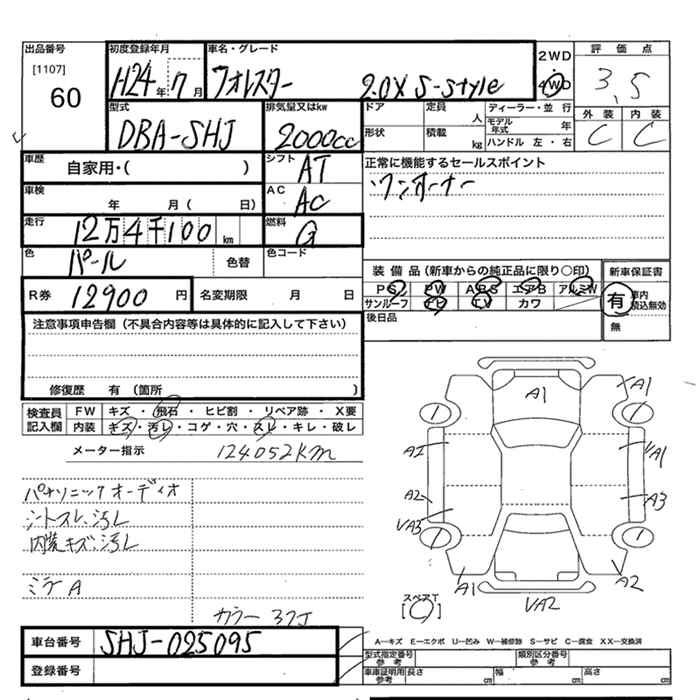 出品番号 初度登録年月 車名・グレード 2WD 評価点
[1107] 60 H24年 7月 フォレスター 2.0X S-style 4WD 3.5
型式 排気量又はkw ドア 定員 人 ディーラー・並行 外装 内装
DBA-SHJ 2000cc 形状 積載 kg モデル年式 年 ハンドル 左・右 C C
車歴 自家用・( ) シフト AT 正常に機能するセールスポイント
車検 年 月( 日) AC AC ワンオーナー
走行 12万4千100km 燃料 G
色 パール 色替 色コード
R券 12900円 名変期限 月 日
装備品(新車からの純正品に限り○印) 新車保証書
PS PW ABS エアB アルミW 有 車内積込無効
サンルーフ TV カワ 無
後日品
注意事項申告欄(不具合内容等は具体的に記入して下さい)
修復歴 有(箇所 )
検査員記入欄 FW キズ・飛石・ヒビ割・リペア跡・X要
内装 キズ・汚レ・コゲ・穴・スレ・キレ・破レ
メーター指示 124052km
パナソニックオーディオ
シートスレ、汚レ
内装キズ、汚レ
ミラーA
カラー37J
A1 A1
A1
A2 A3
A1 A2
VA2
スペアT
車台番号 SHJ-025095
登録番号
A-キズ E-エクボ U-凹み W-補修跡 S-サビ C-腐食 XX-交換済
型式指定番号 参考 類別区分番号 参考
車庫証明用 参考 長さ cm 幅 cm 高さ cm